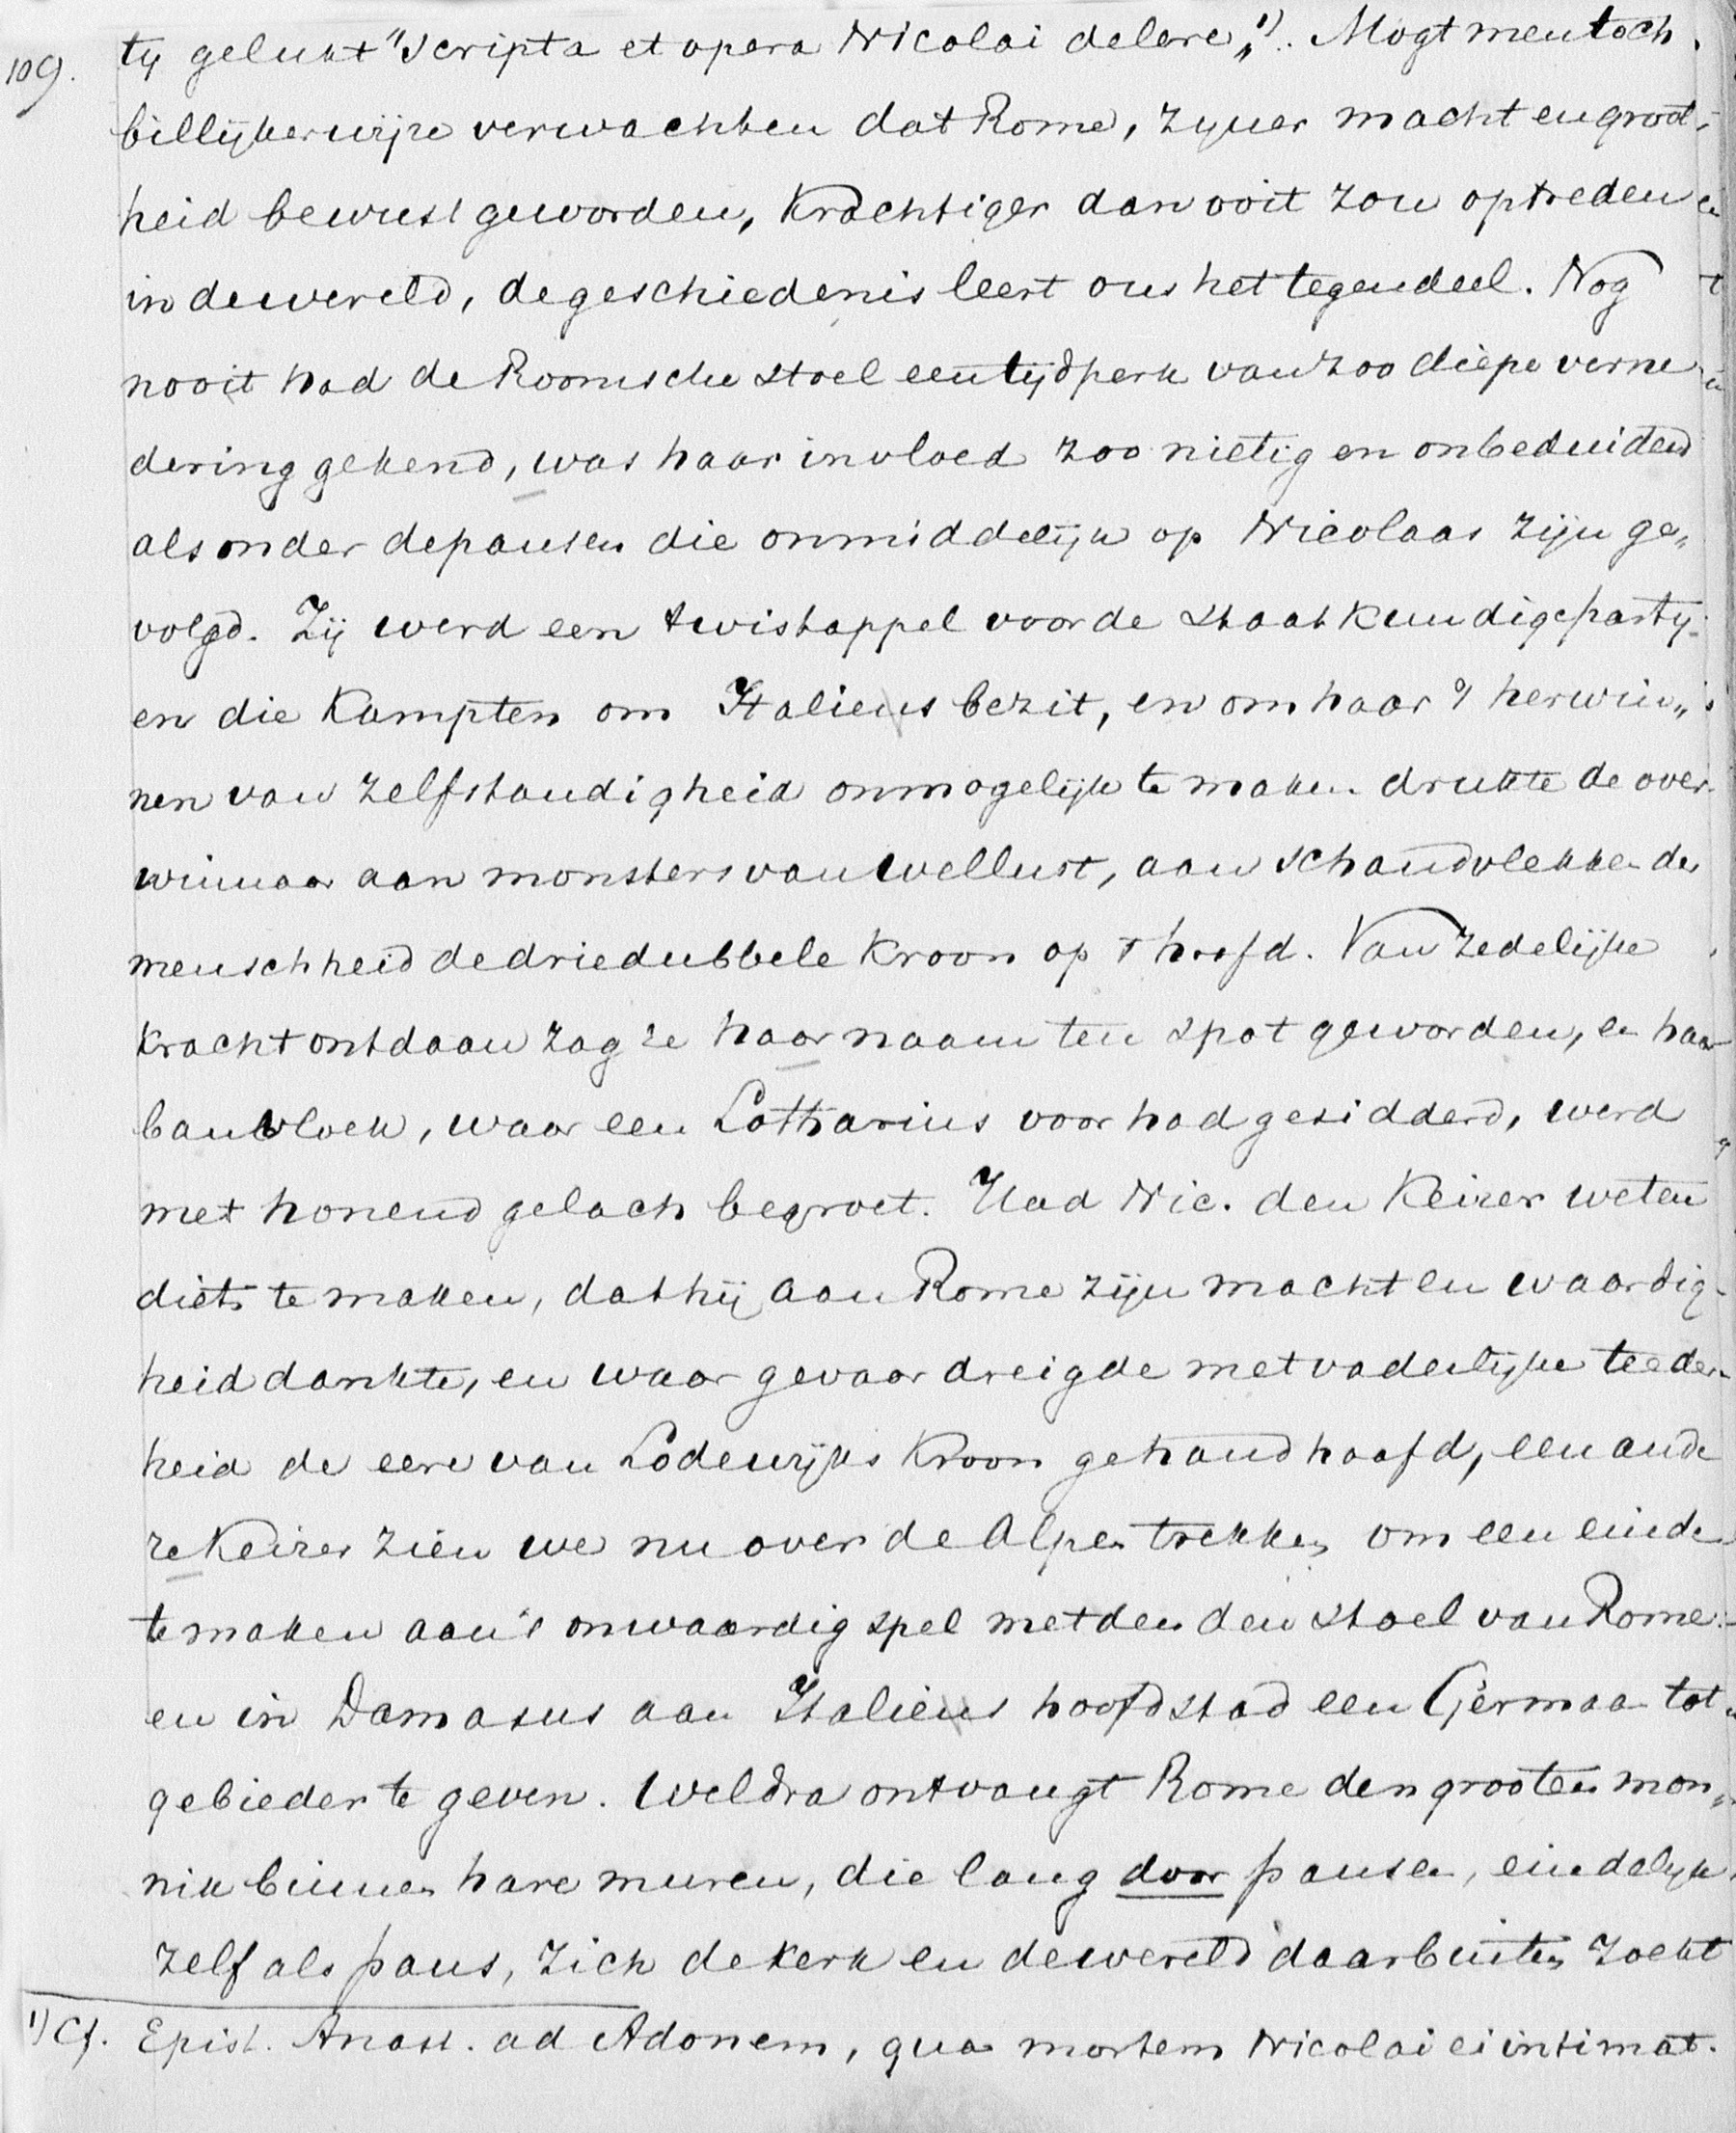 109.
ty gelukt "Scripta et opera Nicolai delere„ 1). Mogt men toch
billijkerwijze verwachten dat Rome, zyner macht en groot-
heid bewust geworden, krachtiger dan ooit zou optreden
in de wereld, de geschiedenis leert ons het tegendeel. Nog
nooit had de Roomsche stoel een tijdperk van zoo diepe verne
dering gekend, was haar invloed zoo nietig en onbeduidend
als onder de pausen die onmiddelijk op Nicolaas zijn ge„
volgd. Zij werd een twistappel voor de staatkundige party-
en die kampten om Italiens bezit, en om haar 't herwin„
nen van zelfstandigheid onmogelijk te maken drukte de over-
winnaar aan monsters van wellust, aan schandvlekken der
menschheid de driedubbele kroon op 't hoofd. Van zedelijke
kracht ontdaan zag ze haar naam ten spot geworden, en haar
banvloek, waar een Lotharius voor had gesidderd, werd
met honend gelach begroet. Had Nic. den Keizer weten
diets te maken, dat hij aan Rome zijn macht en waardig-
heid dankte, en waar gevaar dreigde met vaderlijke teeder-
heid de eere van Lodewijks kroon gehandhaafd, een ande
re Keizer zien we nu over de Alpen trekken om een einde
te maken aan 't onwaardig spel met den den stoel van Rome
en in Damasus aan Italiens hoofdstad een Germaan tot
gebieder te geven. Weldra ontvangt Rome den grooten mon„
nik binnen hare muren, die lang door pausen, eindelijk
zelf als paus, zich de kerk en de wereld daarbuiten zoekt
1) Cf. Epist. Anast. ad Adonem, qua mortem Nicolai ei intimat.